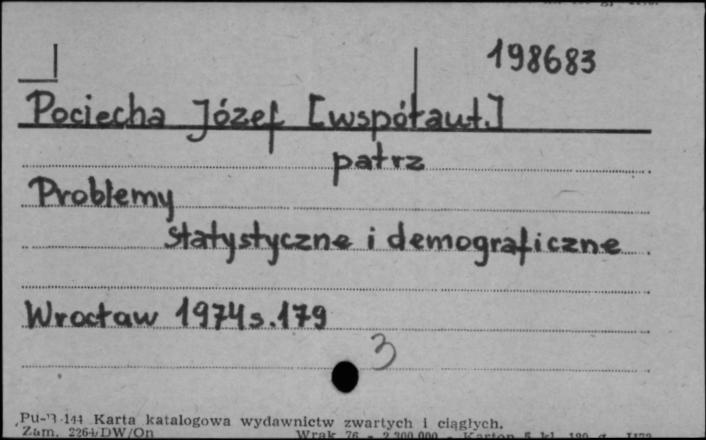 198683
Pociecha Józef [współaut.]
patrz
Problemy
statystyczne i demograficzne
Wrocław 1974 s. 179
3
Pu-B-144 Karta katalogowa wydawnictw zwartych i ciągłych.
Zam. 2264/DW/On Wrak 76 - 2.300.000 - Karton 5 kl.